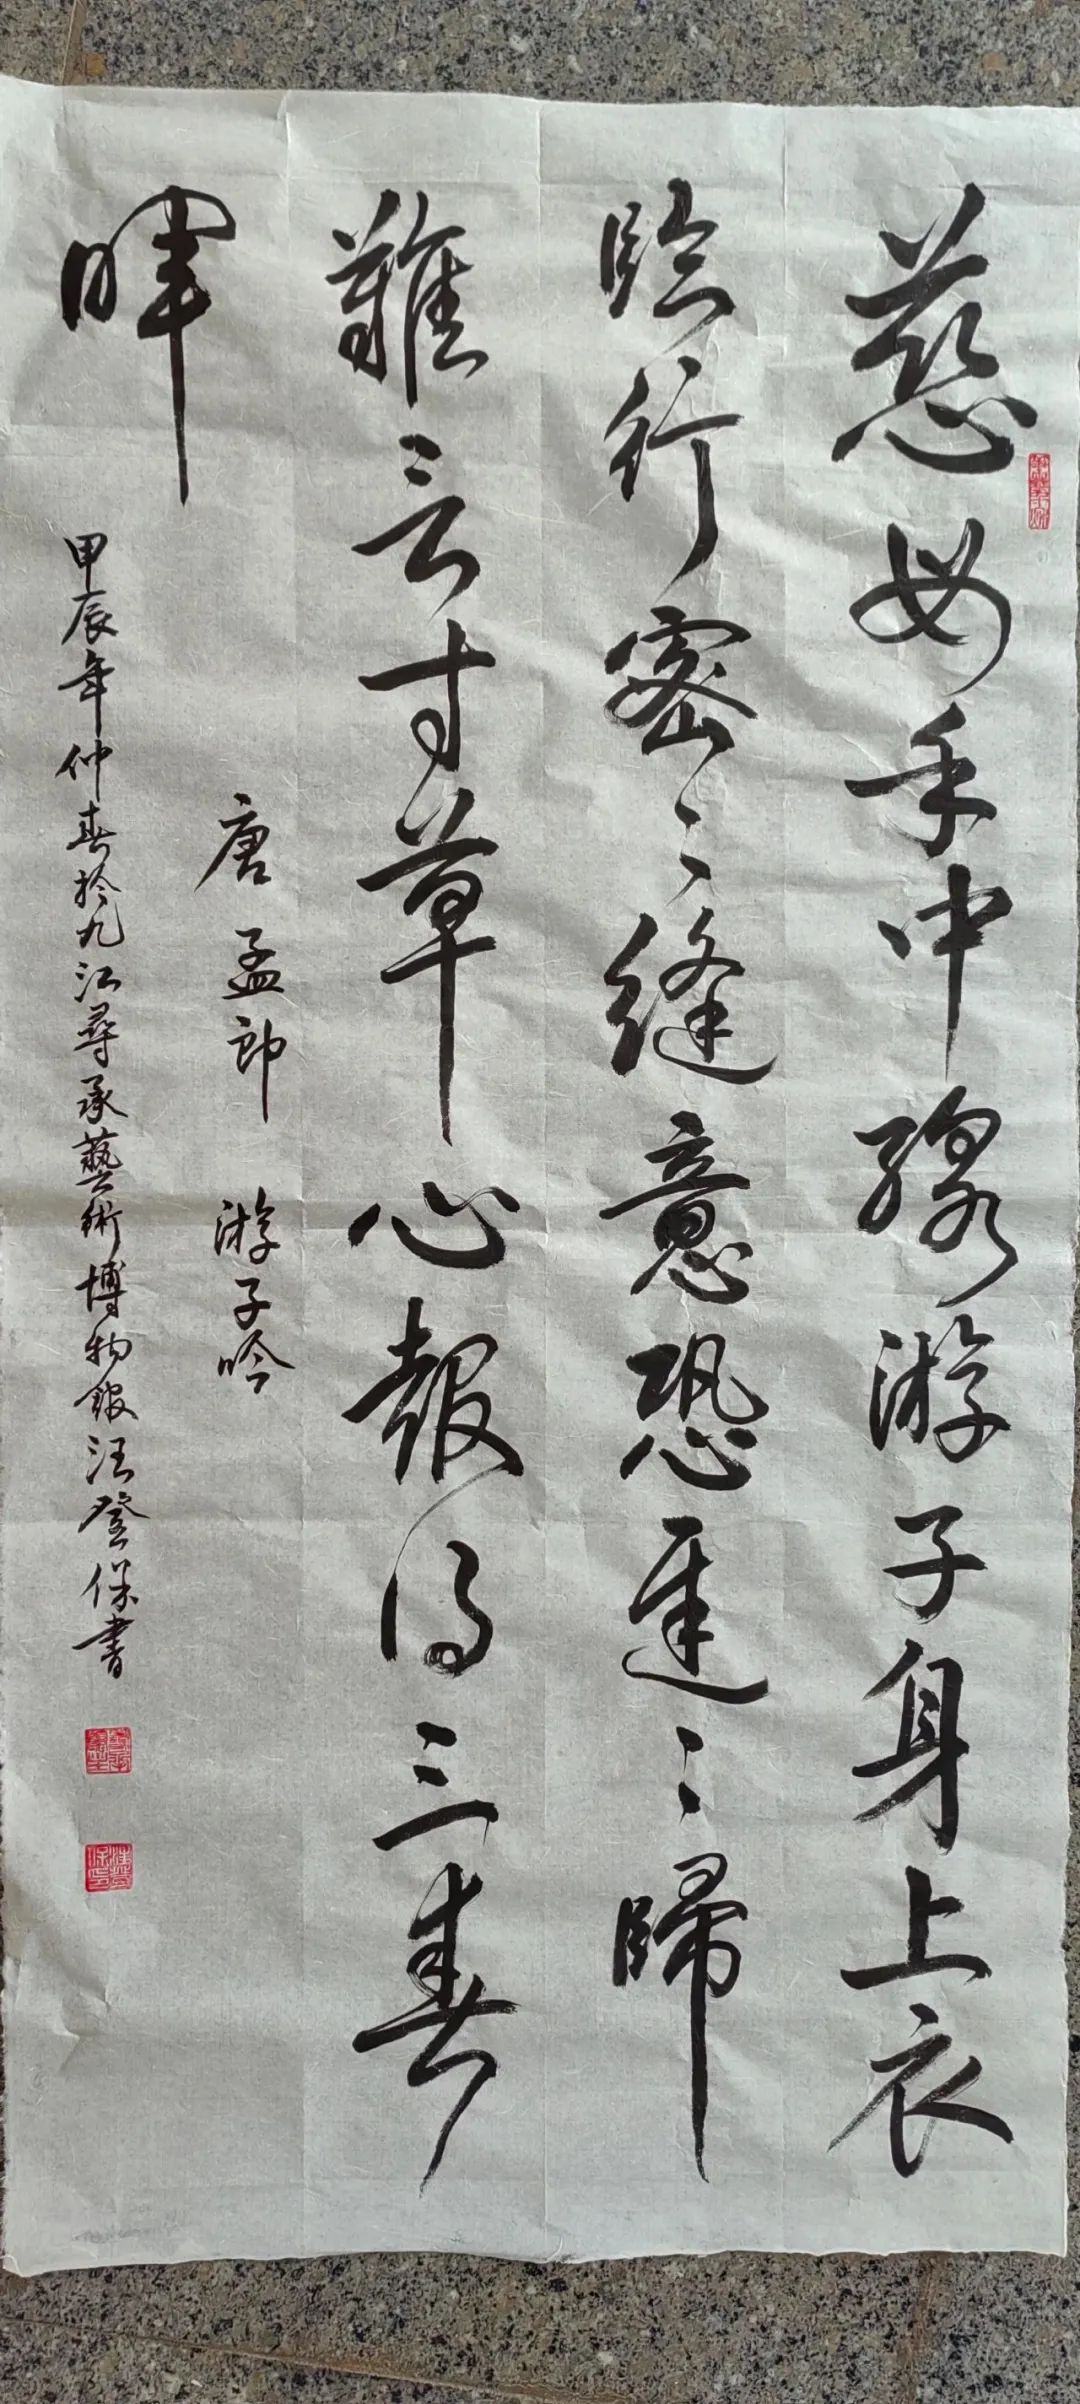 慈母手中線游子身上衣
臨行密〻縫意恐遲〻歸
難言寸草心報得三春
暉
唐 孟郎 游子吟
甲辰年仲春於九江尋承藝術博物館汪登保書